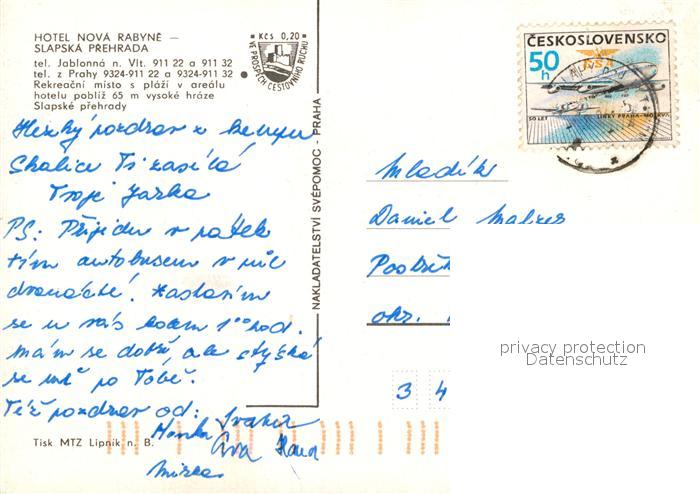 HOTEL NOVÁ RABYNĚ –
SLAPSKÁ PŘEHRADA
tel. Jablonná n. Vlt. 911 22 a 911 32
tel. z Prahy 9324-911 22 a 9324-911 32
Rekreační místo s pláží v areálu
hotelu poblíž 65 m vysoké hráze
Slapské přehrady
Kčs 0,20
VE PROSPĚCH CESTOVNÍHO RUCHU
ČESKOSLOVENSKO
50 h
ČSA
50 LET LINKY PRAHA-MOSKVA
Hezký pozdrav z kempu
Skalice Ti zasílá
Tvoje Jarka
PS: Přijedu v pátek
tím autobusem v půl
dvanácté. Zastavím
se u vás kolem 1⁰⁰ hod.
Mám se dobře, ale stýská
se mě po Tobě.
Též pozdrav od: Ivana
Monika Eva Hana
Mirka
NAKLADATELSTVÍ SVÉPOMOC - PRAHA
Mladík
Daniel
okr.
3 4
privacy protection
Datenschutz
Tisk MTZ Lipník n. B.